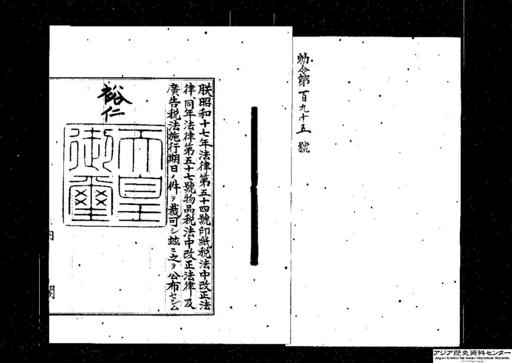 勅令第百九十五號
朕昭和十七年法律第五十四號印紙税法中改正法
律、同年法律第五十七號物品税法中改正法律及
廣告税法施行期日ノ件ヲ裁可シ玆ニ之ヲ公布セシム
裕仁
天皇
御璽
内閣
アジア歴史資料センター
Japan Center for Asian Historical Records